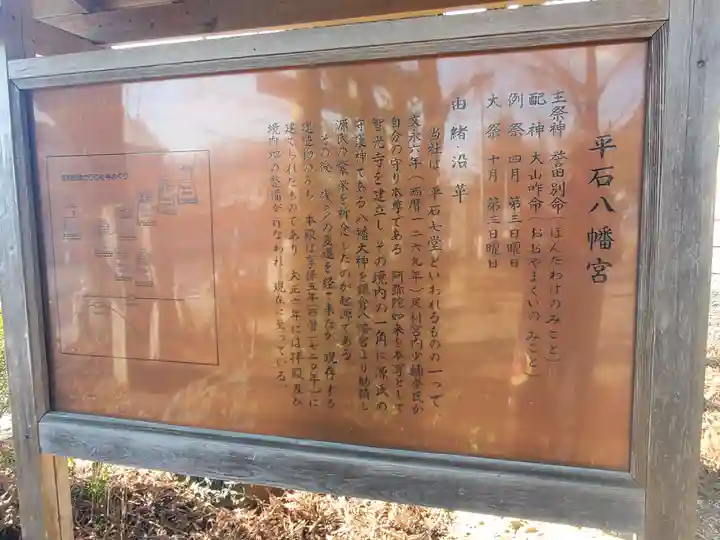 平石八幡宮
主祭神 誉田別命(ほんたわけのみこと)
配神 大山咋命(おおやまくいのみこと)
例祭 四月 第三日曜日
大祭 十月 第三日曜日
由緒・沿革
当社は、平石七堂といわれるものの一つで
文永六年(西暦一二六九年)足利宮内少輔泰氏が
自分の守り本尊である 阿弥陀如来を本尊として
智光寺を建立し、その境内の一角に源氏の
守護神である八幡大神を鎌倉八幡宮より勧請し
源氏の繁栄を祈念したのが起源である。
その後 幾多の変遷を経て来たが 現存する
建造物のうち、本殿は享保五年(西暦一七二〇年)に
建てられたものであり 大正二年には拝殿及び
境内地の整備が行なわれ 現在に至っている。